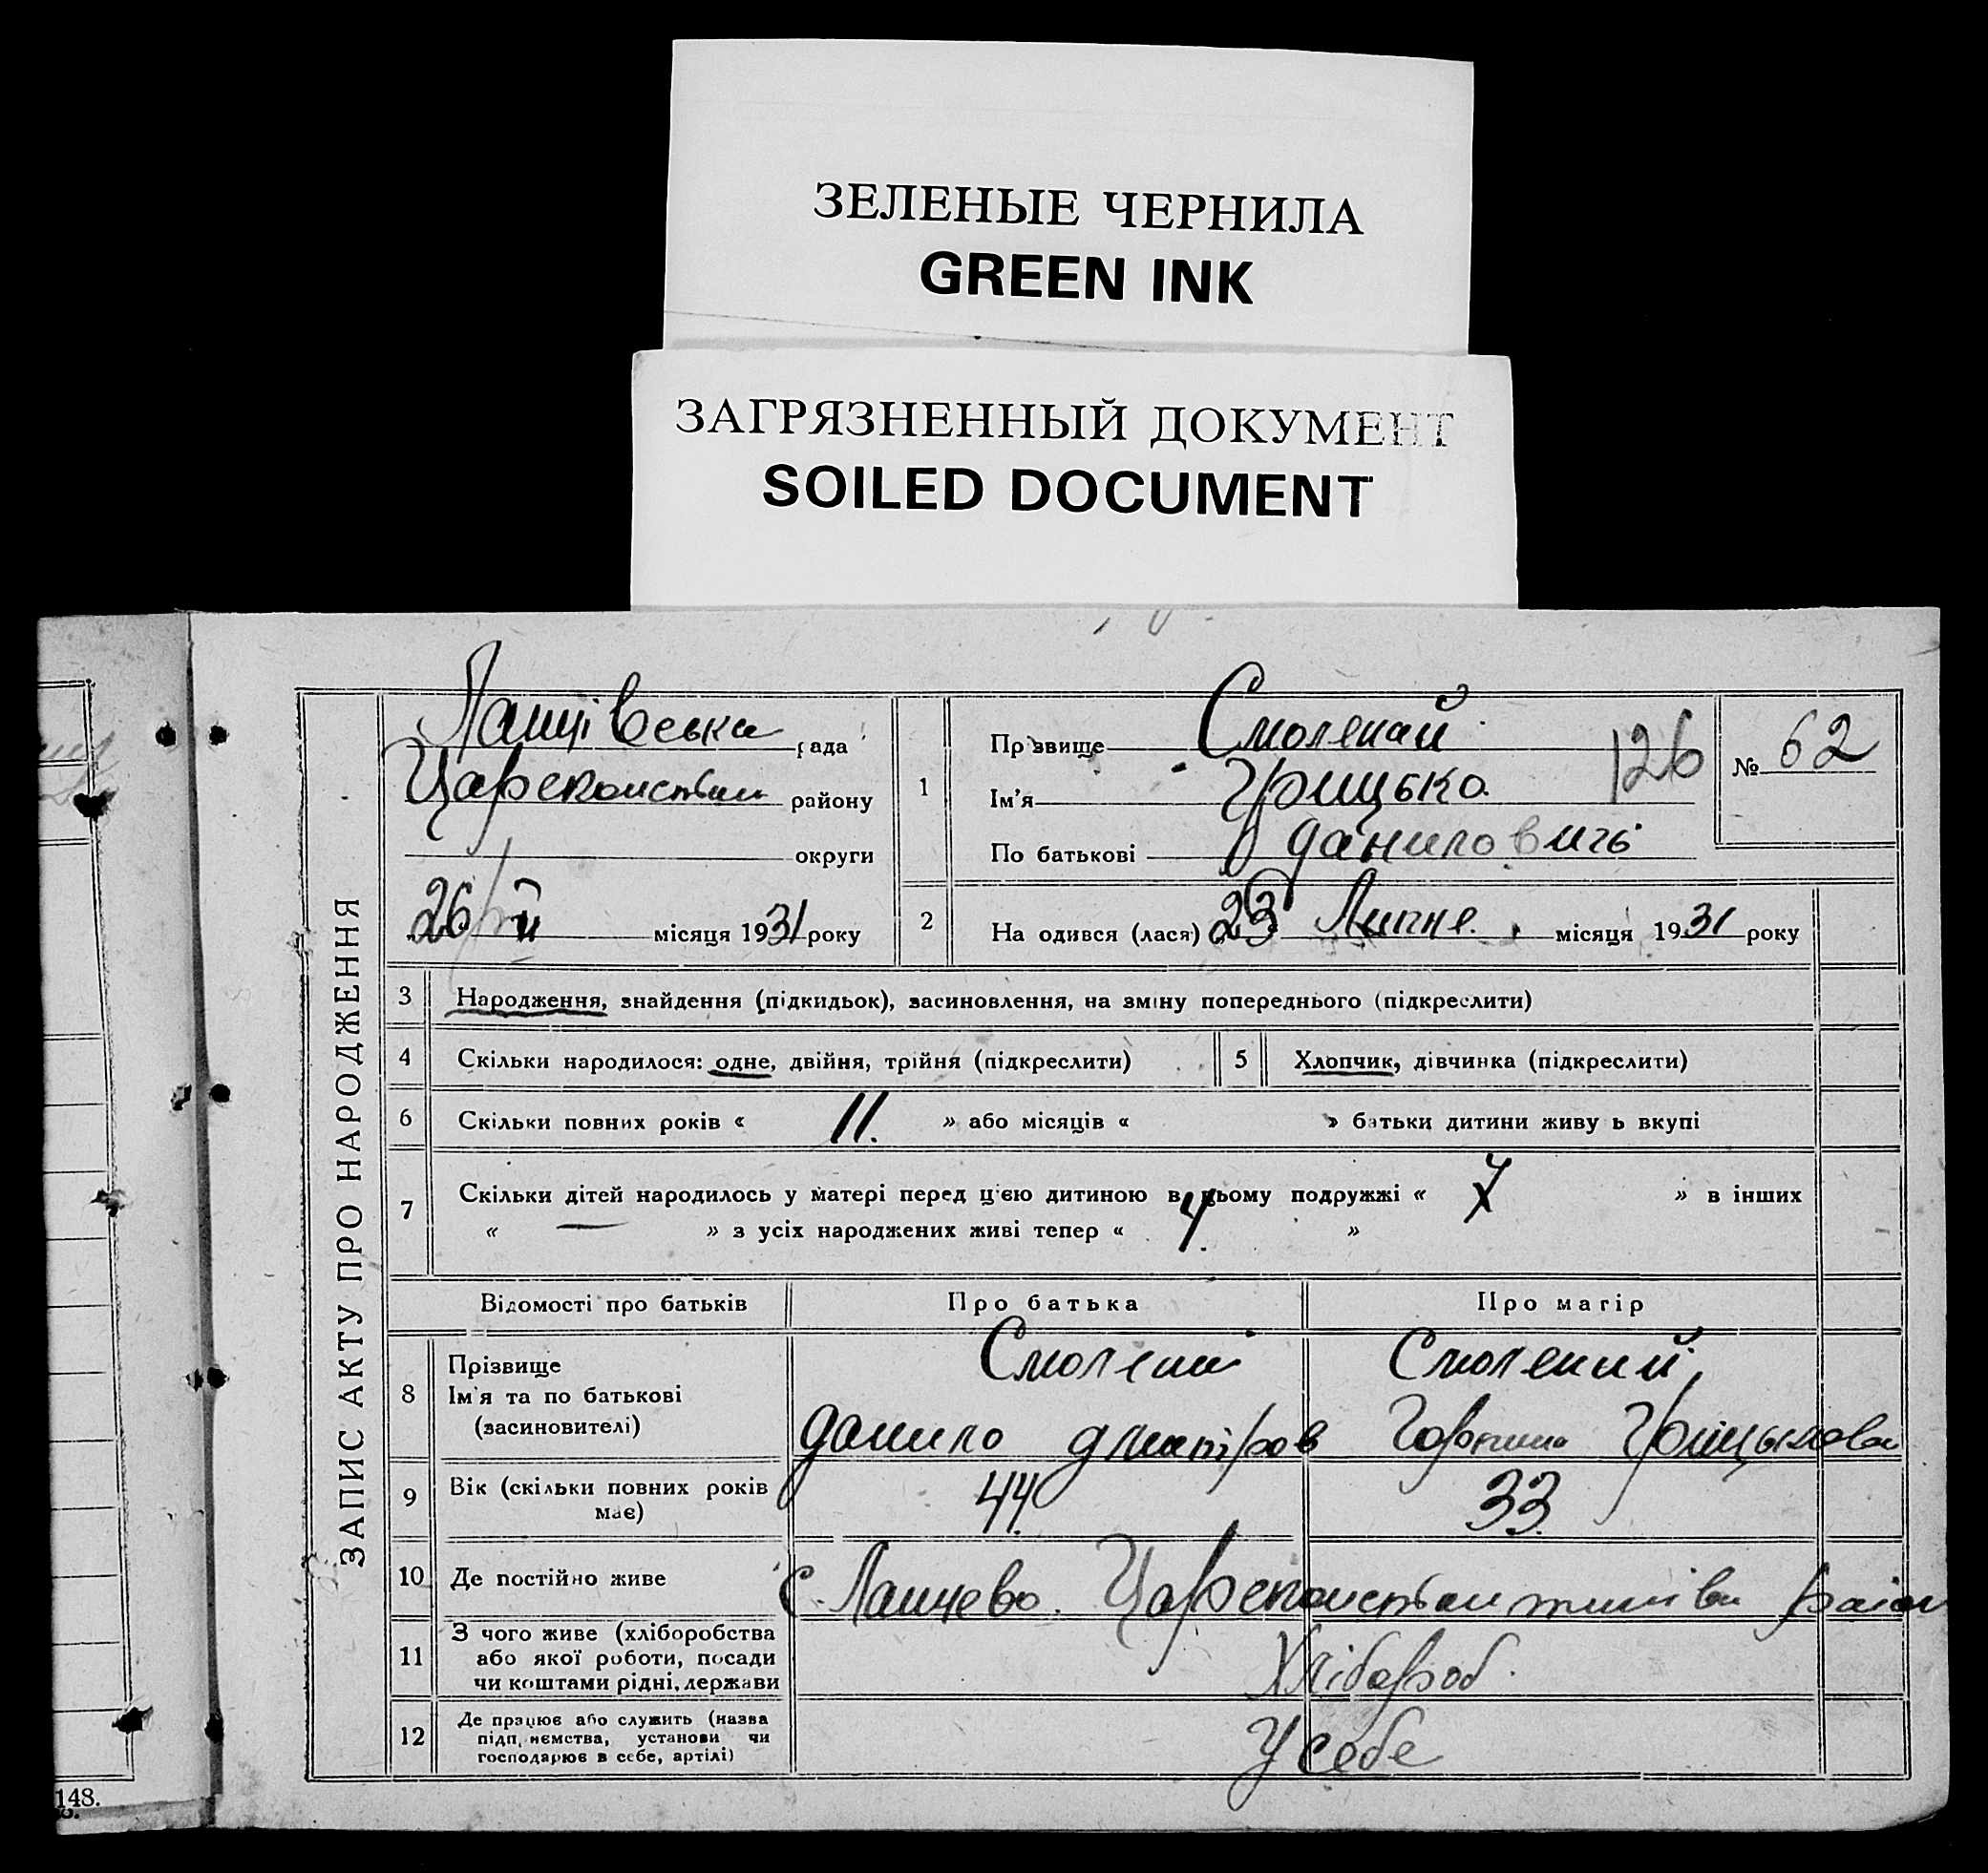 ЗЕЛЕНЫЕ ЧЕРНИЛА
GREEN INK
ЗАГРЯЗНЕННЫЙ ДОКУМЕНТ
SOILED DOCUMENT
ЗАПИС АКТУ ПРО НАРОДЖЕННЯ
рада
району
округи
26 місяця 1931 року
1
Прізвище
Ім'я Грицько
По батькові Даниловичь
126
№ 62
2 На одився (лася) 23 Липне. місяця 1931 року
3 Народження, знайдення (підкидьок), засиновлення, на зміну попереднього (підкреслити)
4 Скільки народилося: одне, двійня, трійня (підкреслити) 5 Хлопчик, дівчинка (підкреслити)
6 Скільки повних років « 11. » або місяців « » батьки дитини живу ь вкупі
7 Скільки дітей народилось у матері перед цією дитиною в цьому подружжі « » в інших
« — » з усіх народжених живі тепер « 4. »
Відомості про батьків Про батька Про матір
8 Прізвище
Ім'я та по батькові
(засиновителі)
Данило Дмитров
9 Вік (скільки повних років має) 44. 33.
10 Де постійно живе с.
11 З чого живе (хліборобства
або якої роботи, посади
чи коштами рідні, держави
Хлібороб.
12 Де працює або служить (назва
підп иємства, установи чи
господарює в себе, артілі)
У себе
148.